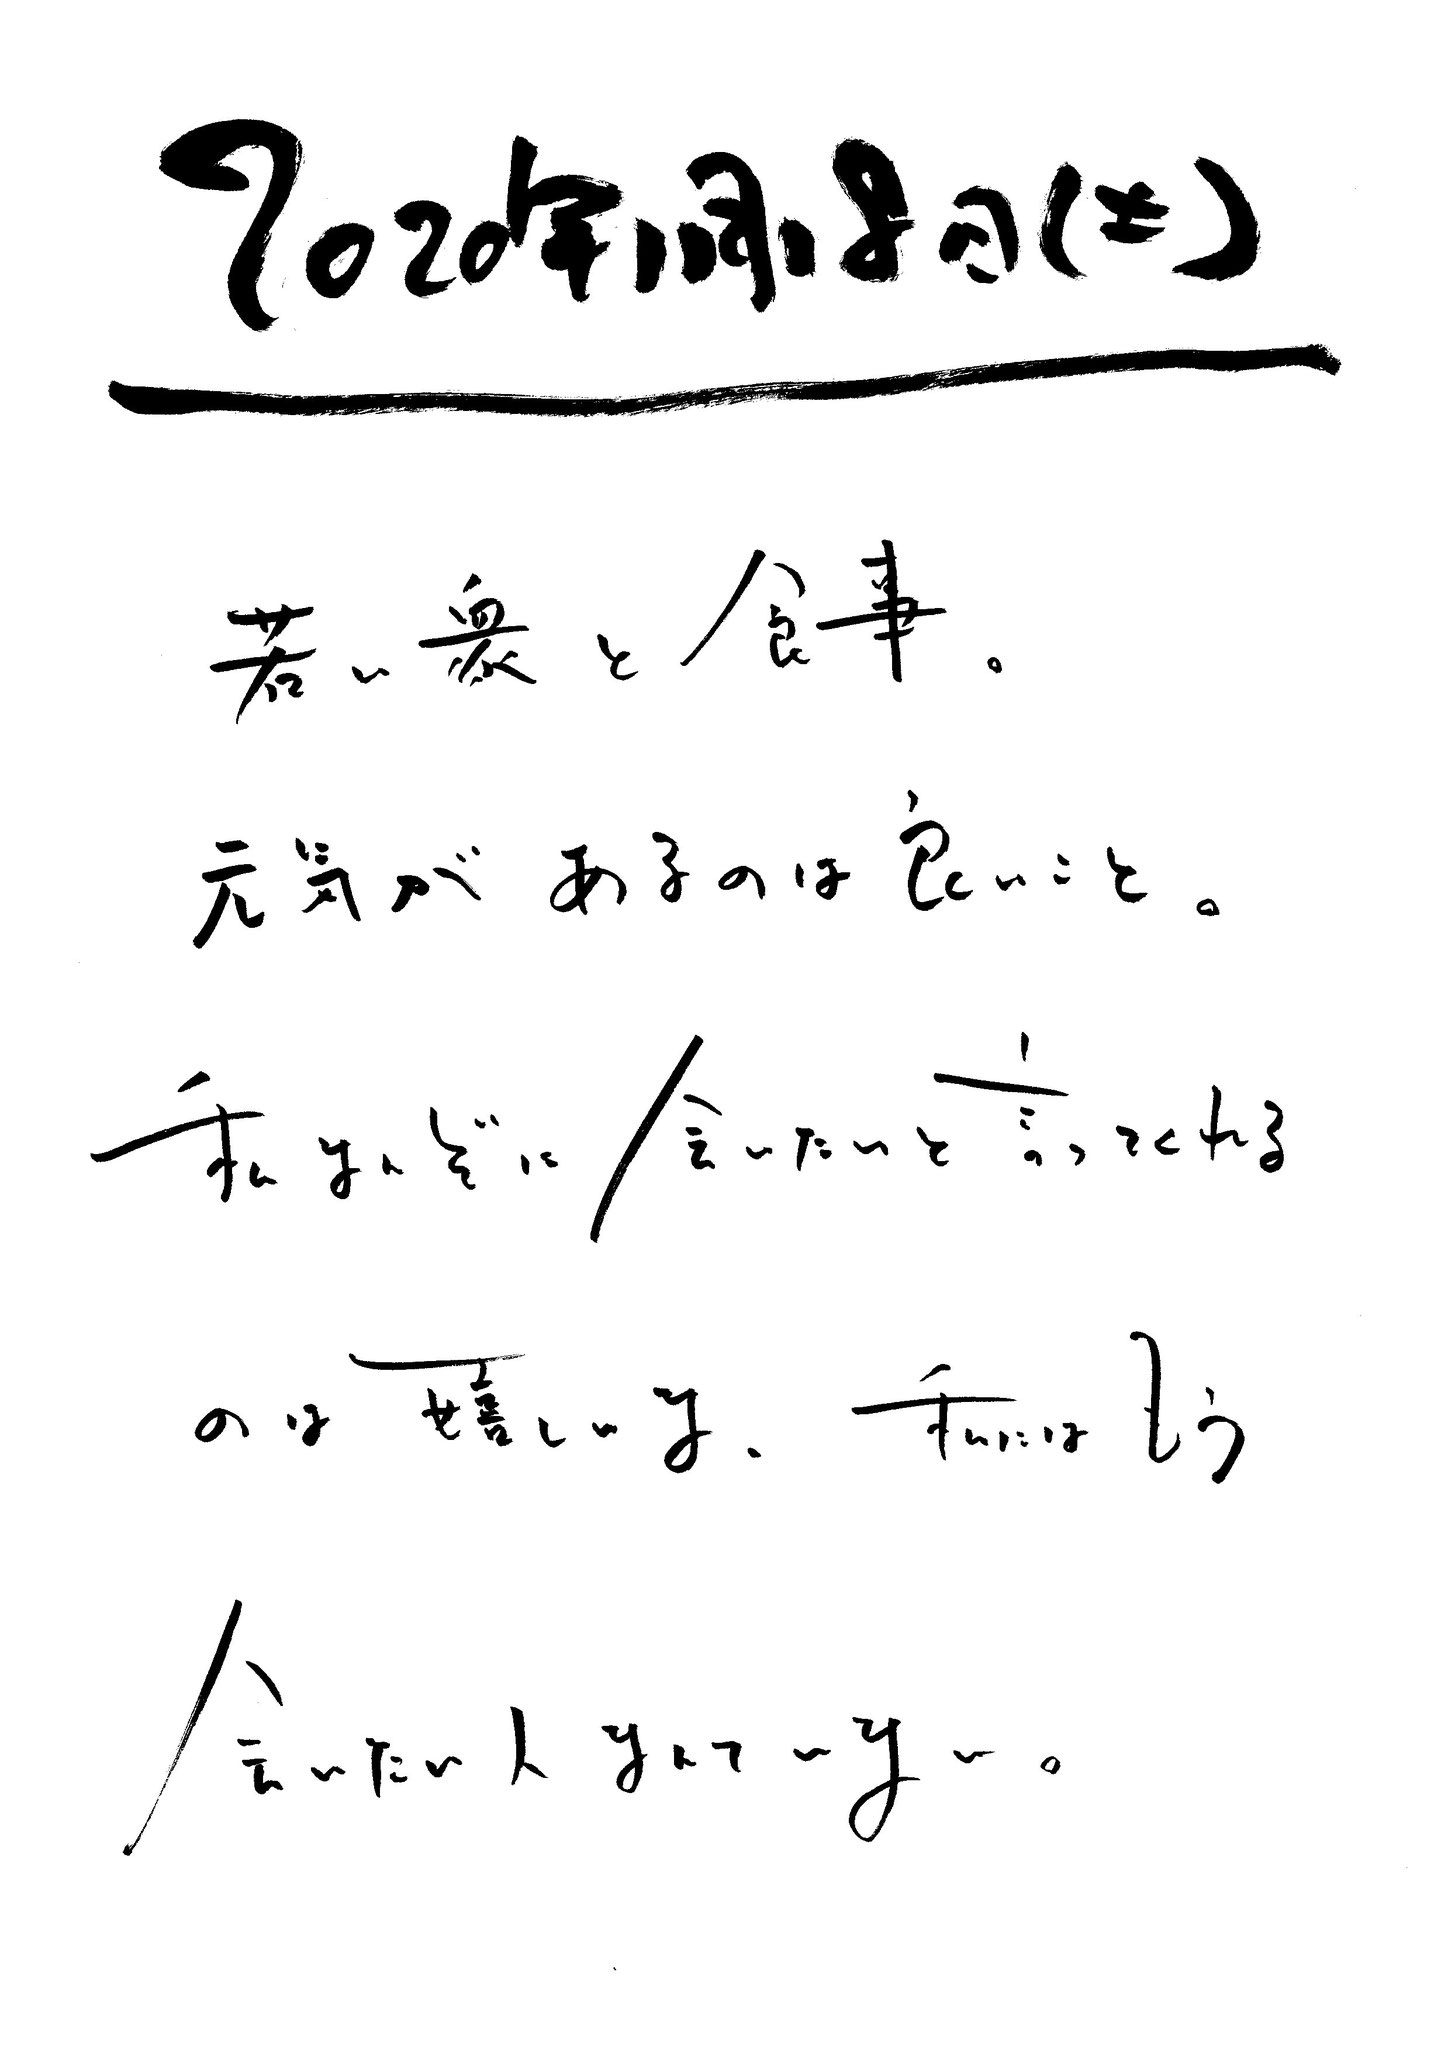 2020年1月18日(土)
若い衆と食事。
元気があるのは良いこと。
私なんぞに会いたいと言ってくれる
のは嬉しいな、私にはもう
会いたい人なんていない。